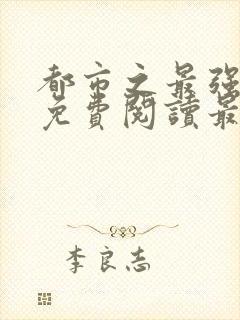 都市之最強
免費閱讀最
李良志